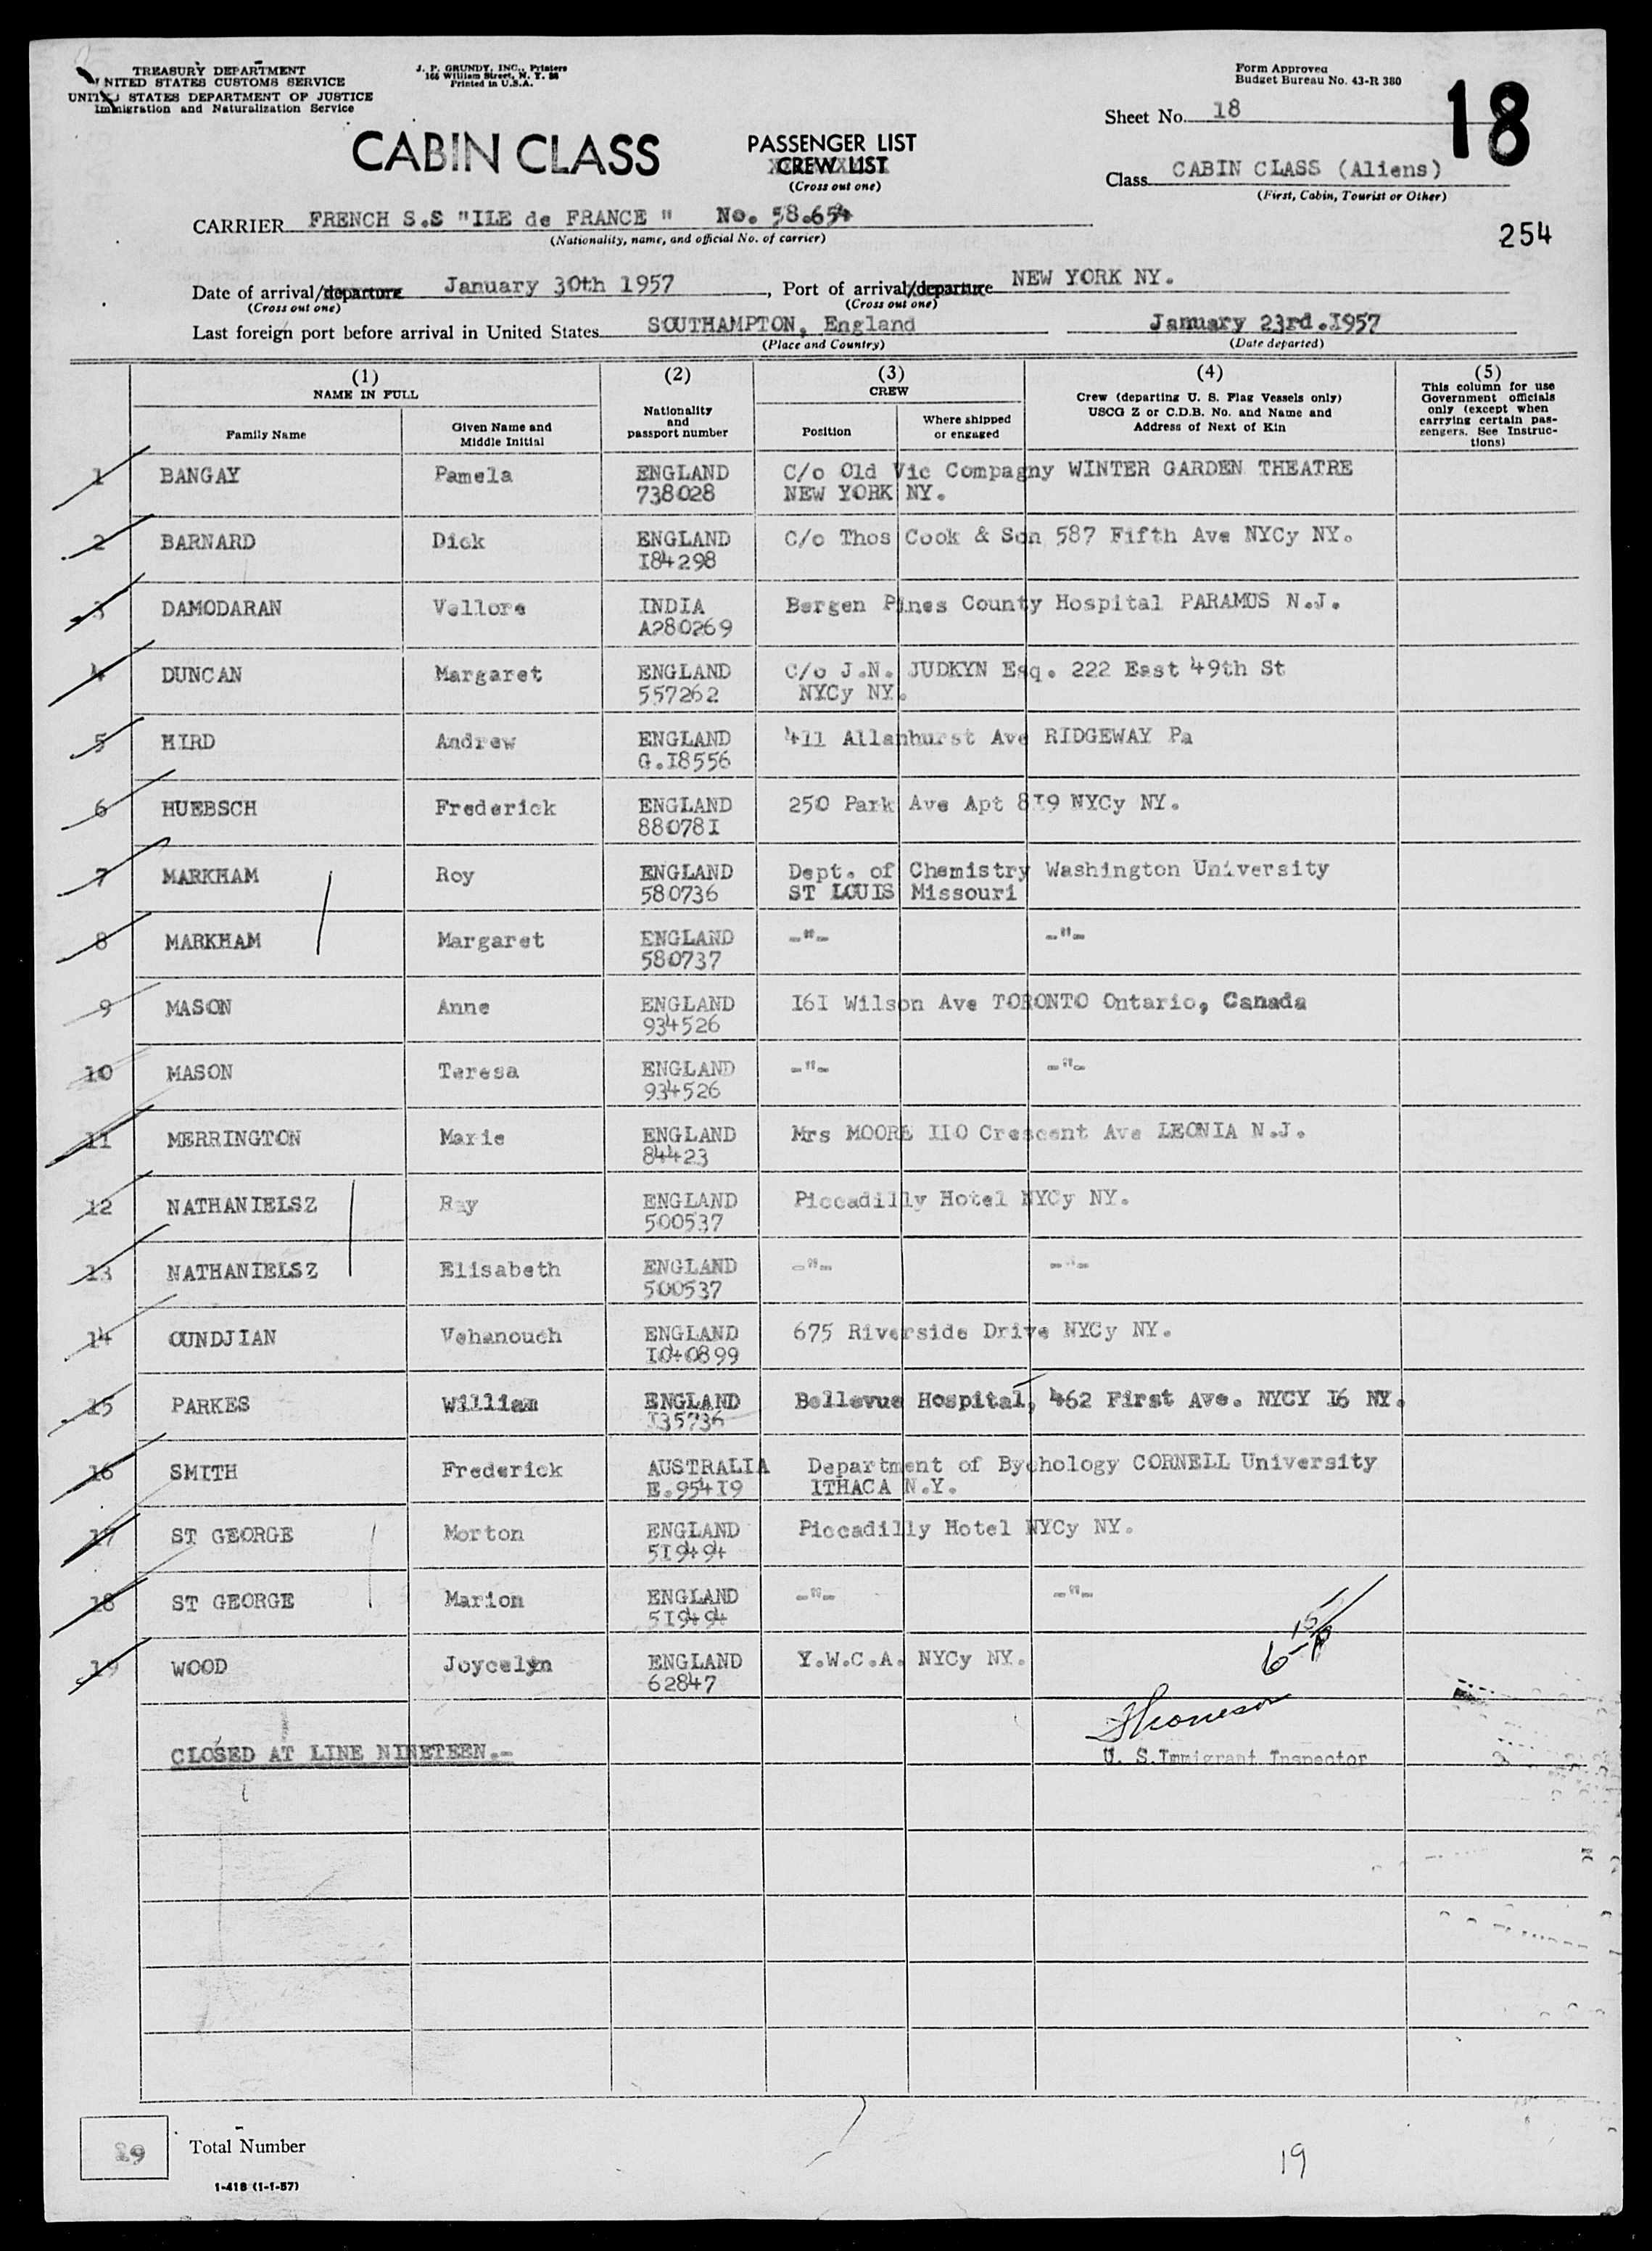 TREASURY DEPARTMENT
UNITED STATES CUSTOMS SERVICE
UNITED STATES DEPARTMENT OF JUSTICE
Immigration and Naturalization Service
J. P. GRUNDY, INC., Printers
166 William Street, N. Y. 38
Printed in U.S.A.
Form Approved
Budget Bureau No. 43-R 380
Sheet No. 18
18
CABIN CLASS
PASSENGER LIST
CREW LIST
(Cross out one)
Class CABIN CLASS (Aliens)
(First, Cabin, Tourist or Other)
CARRIER FRENCH S.S "ILE de FRANCE " No. 58.654
(Nationality, name, and official No. of carrier)
254
Date of arrival/departure January 30th 1957, Port of arrival/departure NEW YORK NY.
(Cross out one) (Cross out one)
Last foreign port before arrival in United States SOUTHAMPTON, England January 23rd.I957
(Place and Country) (Date departed)
(1) NAME IN FULL
Family Name
Given Name and Middle Initial
(2) Nationality and passport number
(3) CREW
Position
Where shipped or engaged
(4) Crew (departing U. S. Flag Vessels only) USCG Z or C.D.B. No. and Name and Address of Next of Kin
(5) This column for use Government officials only (except when carrying certain passengers. See Instructions)
1 BANGAY Pamela ENGLAND C/o Old Vic Compagny WINTER GARDEN THEATRE
738028 NEW YORK NY.
2 BARNARD Dick ENGLAND C/o Thos Cook & Son 587 Fifth Ave NYCy NY.
I84298
3 DAMODARAN Vellore INDIA Bergen Pines County Hospital PARAMUS N.J.
A280269
4 DUNCAN Margaret ENGLAND C/o J.N. JUDKYN Esq. 222 East 49th St
557262 NYCy NY.
5 HIRD Andrew ENGLAND 411 Allanhurst Ave RIDGEWAY Pa
G.I8556
6 HUEBSCH Frederick ENGLAND 250 Park Ave Apt 8I9 NYCy NY.
88078I
7 MARKHAM Roy ENGLAND Dept. of Chemistry Washington University
580736 ST LOUIS Missouri
8 MARKHAM Margaret ENGLAND -"- -"-
580737
9 MASON Anne ENGLAND I6I Wilson Ave TORONTO Ontario, Canada
934526
10 MASON Teresa ENGLAND -"- -"-
934526
11 MERRINGTON Marie ENGLAND Mrs MOORE IIO Crescent Ave LEONIA N.J.
84423
12 NATHANIELSZ Ray ENGLAND Piccadilly Hotel NYCy NY.
500537
13 NATHANIELSZ Elisabeth ENGLAND -"- -"-
500537
14 OUNDJIAN Vehanouch ENGLAND 675 Riverside Drive NYCy NY.
I040899
15 PARKES William ENGLAND Bellevue Hospital, 462 First Ave. NYCY I6 NY.
I35736
16 SMITH Frederick AUSTRALIA Department of Bychology CORNELL University
E.954I9 ITHACA N.Y.
17 ST GEORGE Morton ENGLAND Piccadilly Hotel NYCy NY.
5I9494
18 ST GEORGE Marion ENGLAND -"- -"-
5I9494
19 WOOD Joycelyn ENGLAND Y.W.C.A. NYCy NY.
62847
CLOSED AT LINE NINETEEN.-
U. S.Immigrant Inspector
19 Total Number
19
I-418 (1-1-57)